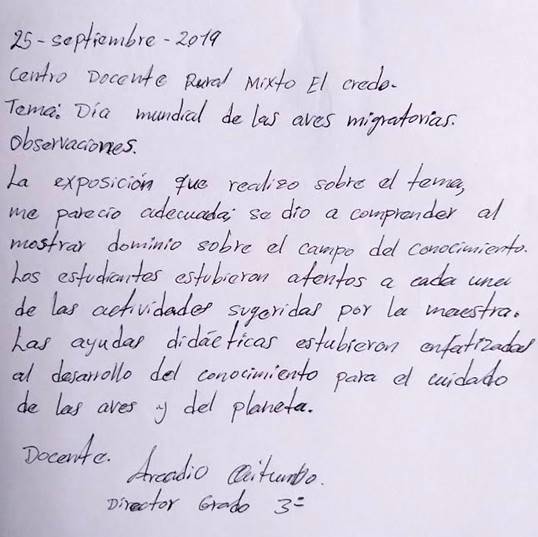 25-septiembre-2019
Centro Docente Rural Mixto El credo.
Tema: Día mundial de las aves migratorias.
Observaciones.
La exposición que realizo sobre el tema,
me parecio adecuada; se dio a comprender al
mostrar dominio sobre el campo del conocimiento.
Los estudiantes estubieron atentos a cada una
de las actividades sugeridas por la maestra.
Las ayudas didácticas estubieron enfatizadas
al desarrollo del conocimiento para el cuidado
de las aves y del planeta.
Docente.
Arcadio
Director Grado 3º